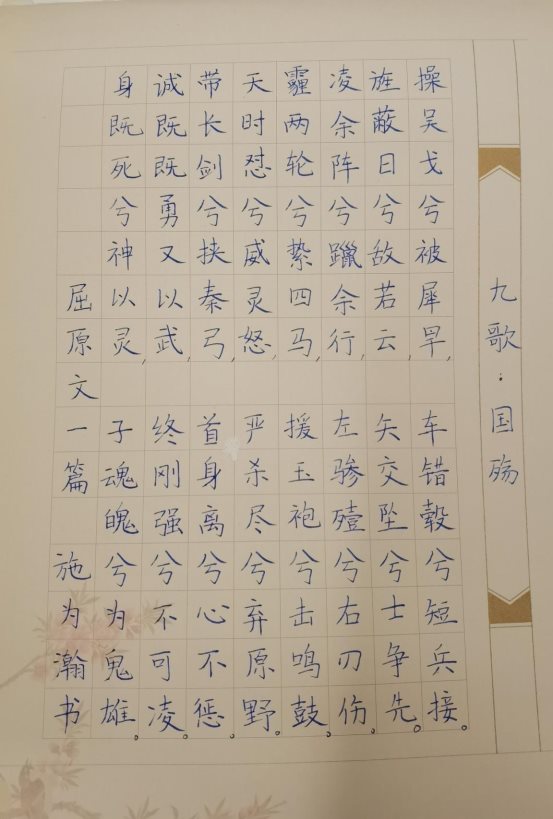 九歌·国殇
操吴戈兮被犀早,车错毂兮短兵接。
旌蔽日兮敌若云,矢交坠兮士争先。
凌余阵兮躐余行,左骖殪兮右刃伤。
霾两轮兮絷四马,援玉袍兮击鸣鼓。
天时怼兮威灵怒,严杀尽兮弃原野。
带长剑兮挟秦弓,首身离兮心不惩。
诚既既勇又以武,终刚强兮不可凌。
身既死兮神以灵,子魂魄兮为鬼雄。
屈原文一篇 施为瀚书